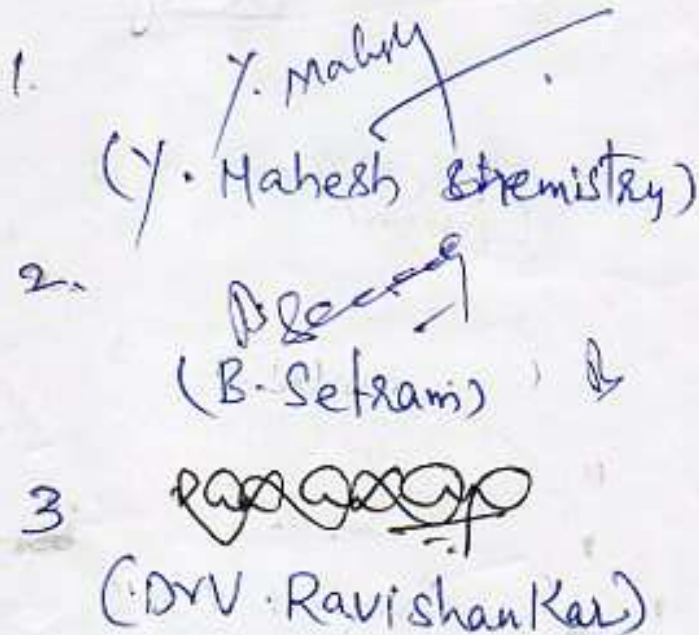 1. Y. Mahesh
(Y. Mahesh Chemistry)
2.
(B. Setram)
3
(Dr V. Ravishankar)